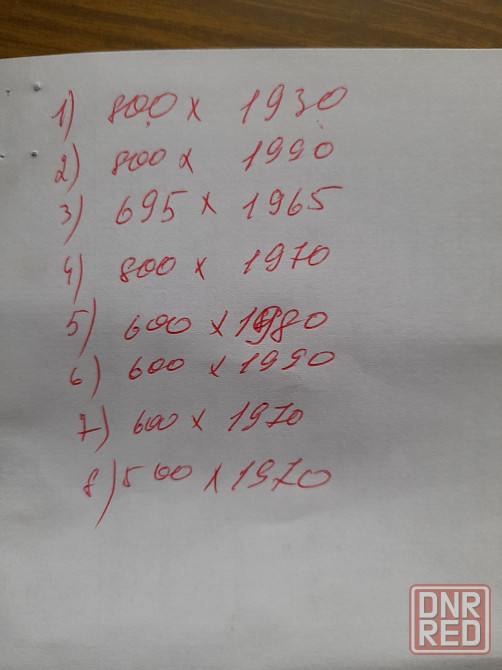 1) 800 x 1930
2) 800 x 1990
3) 695 x 1965
4) 800 x 1970
5) 600 x 1980
6) 600 x 1990
7) 600 x 1970
8) 500 x 1970
DNR
RED